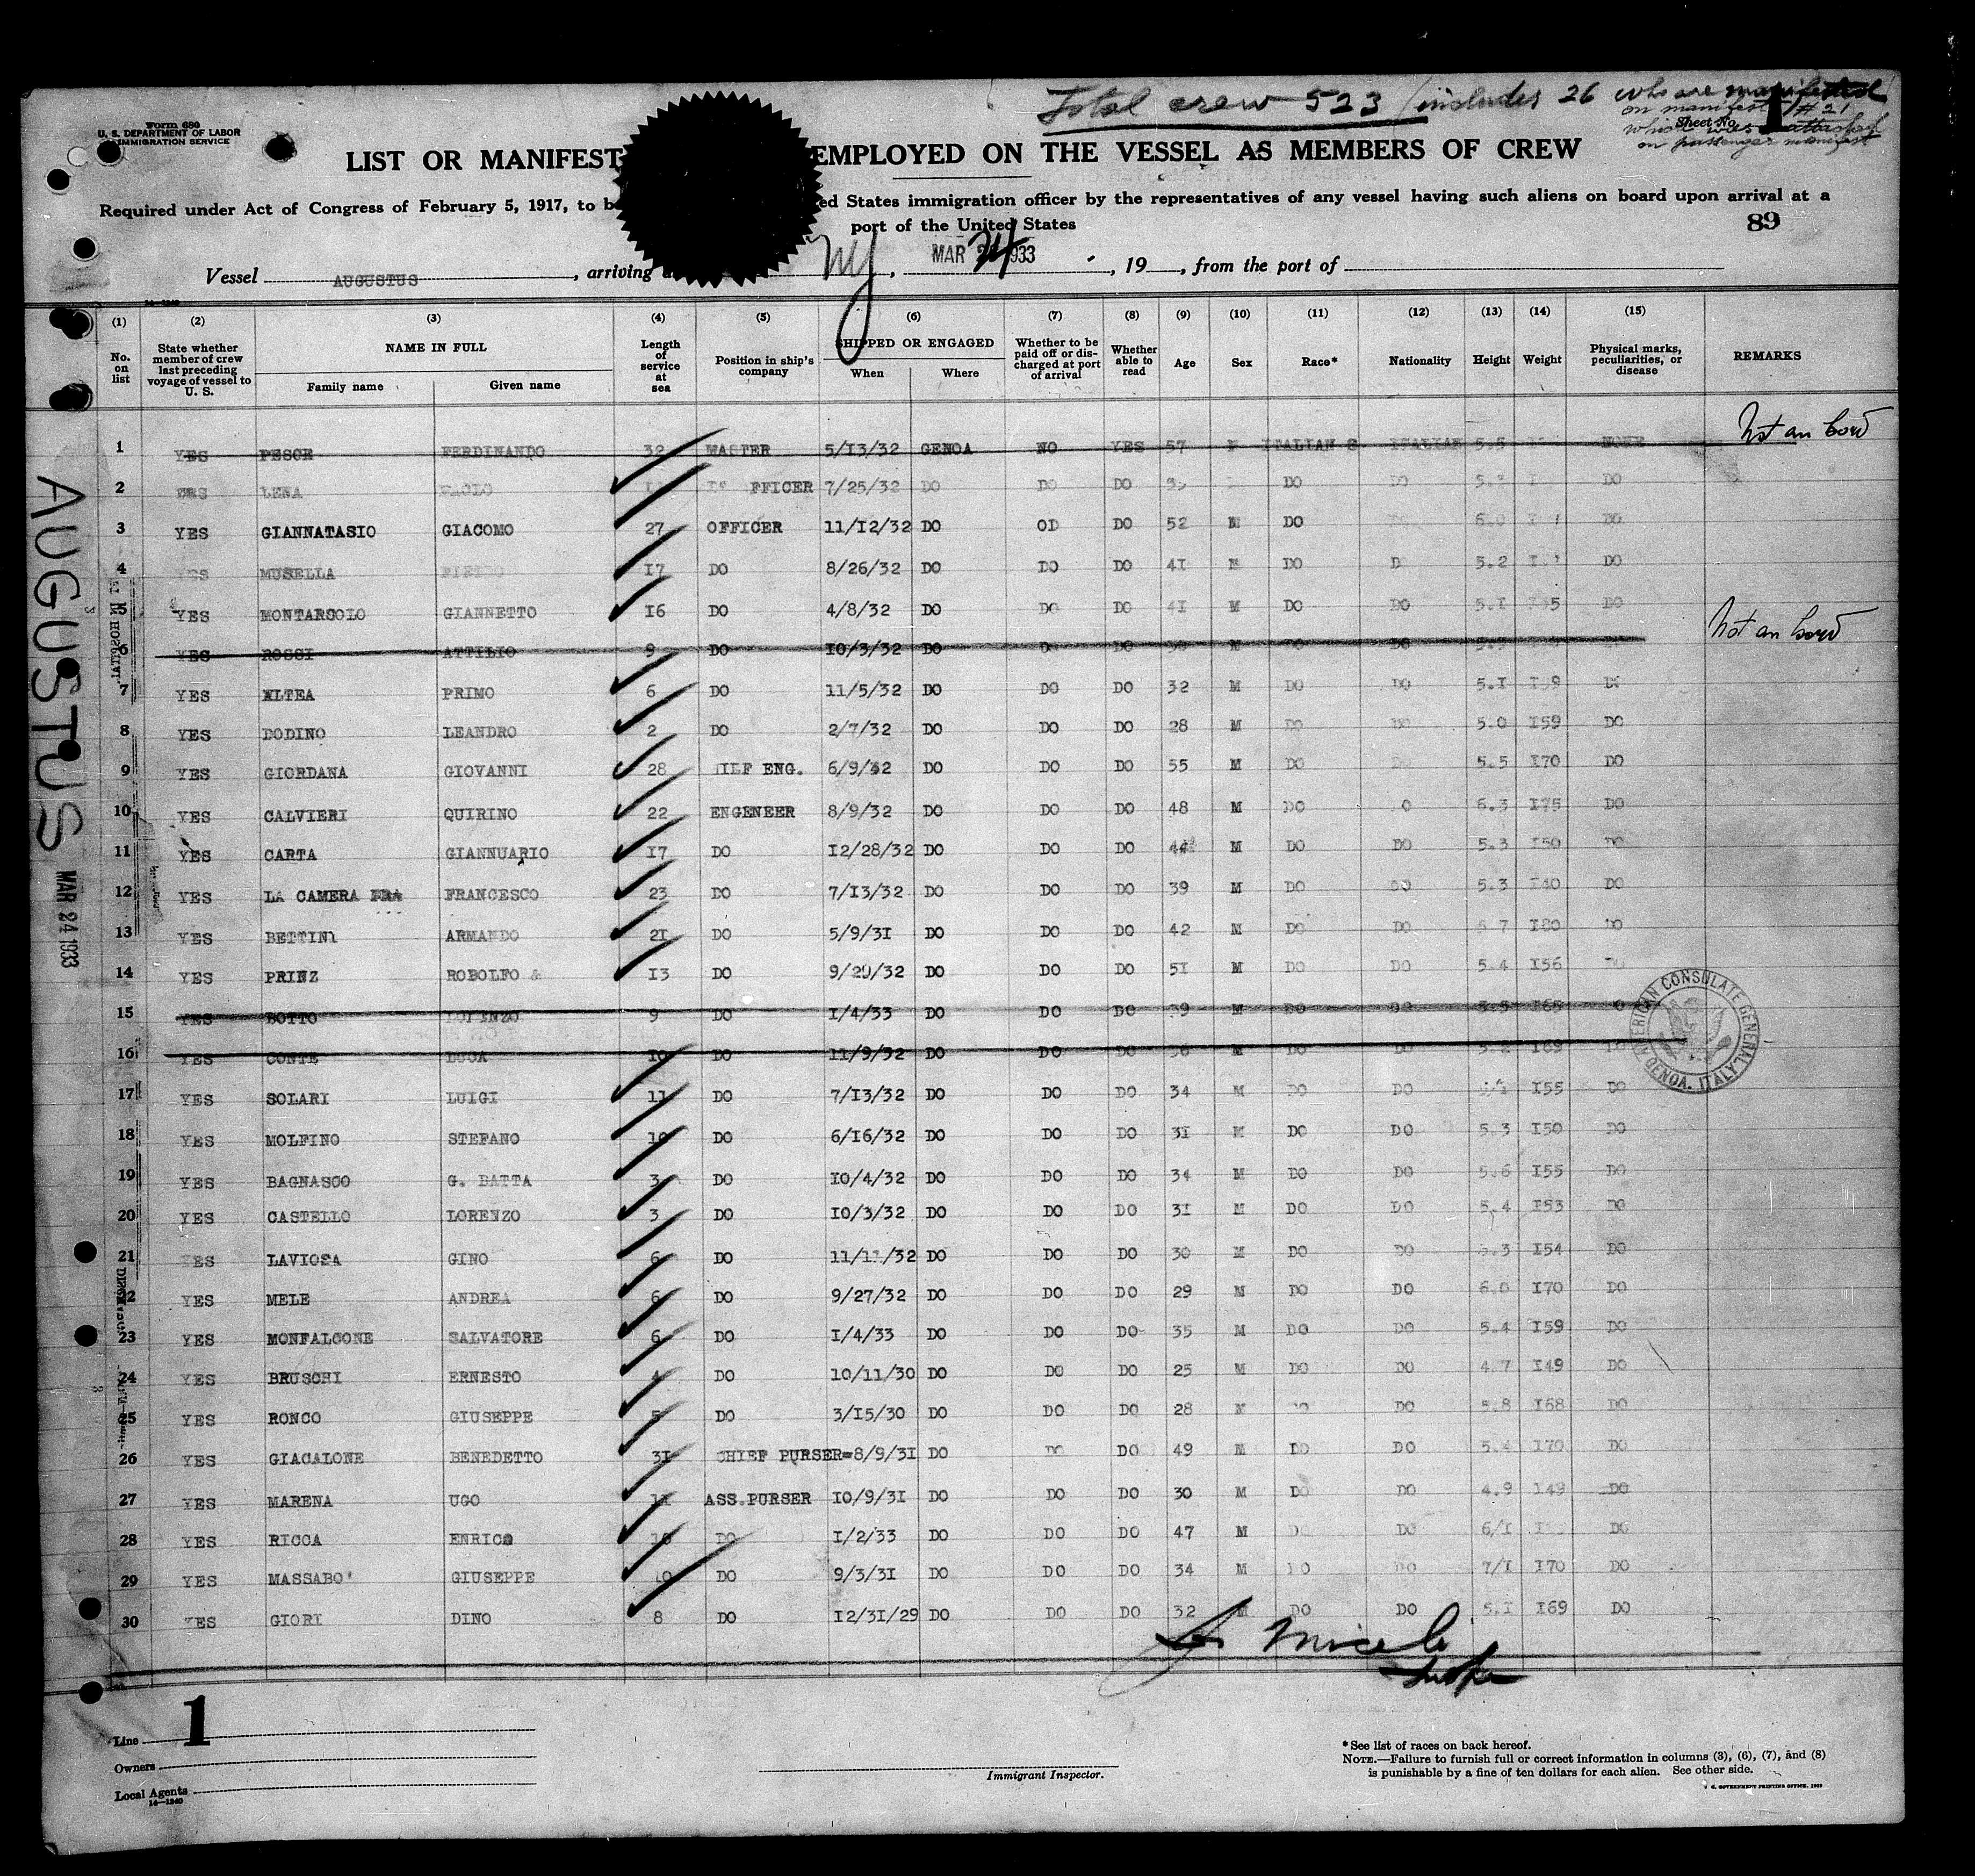 Total crew 523 / includes 26 who are manifested
on manifest #21
which was attached
on passenger manifest
Form 680
U. S. DEPARTMENT OF LABOR
IMMIGRATION SERVICE
Sheet No. 1
LIST OR MANIFEST EMPLOYED ON THE VESSEL AS MEMBERS OF CREW
Required under Act of Congress of February 5, 1917, to b ed States immigration officer by the representatives of any vessel having such aliens on board upon arrival at a
port of the United States
89
Vessel AUGUSTUS, arriving NY, MAR 24 1933, 19, from the port of
14-1240
(1) (2) (3) (4) (5) (6) (7) (8) (9) (10) (11) (12) (13) (14) (15)
No. on list
State whether member of crew last preceding voyage of vessel to U. S.
NAME IN FULL
Family name Given name
Length of service at sea
Position in ship's company
SHIPPED OR ENGAGED
When Where
Whether to be paid off or discharged at port of arrival
Whether able to read
Age Sex Race* Nationality Height Weight
Physical marks, peculiarities, or disease
REMARKS
1 YES PESCE FERDINANDO 32 MASTER 5/13/32 GENOA NO YES 57 ITALIAN S ITALIAN 5.5 NONE Not an bord
2 YES LENA PAOLO FFICER 7/25/32 DO DO DO DO DO
3 YES GIANNATASIO GIACOMO 27 OFFICER 11/12/32 DO OD DO 52 M DO 6.0 DO
4 YES MUSELLA PIETRO 17 DO 8/26/32 DO DO DO 41 M DO D 5.2 DO
5 YES MONTARSOLO GIANNETTO 16 DO 4/8/32 DO DO DO 41 M DO DO 5.1 DO
6 YES ROSSI ATTILIO 9 DO 10/3/32 DO DO DO M DO DO Not an bord
7 YES ELTEA PRIMO 6 DO 11/5/32 DO DO DO 32 M DO DO 5.1 159 DO
8 YES DODINO LEANDRO 2 DO 2/7/32 DO DO DO 28 M DO DO 5.0 159 DO
9 YES GIORDANA GIOVANNI 28 HILF ENG. 6/9/32 DO DO DO 55 M DO DO 5.5 170 DO
10 YES CALVIERI QUIRINO 22 ENGENEER 8/9/32 DO DO DO 48 M DO O 6.3 175 DO
11 YES CARTA GIANNUARIO 17 DO 12/28/32 DO DO DO 44 M DO DO 5.3 150 DO
12 YES LA CAMERA FRA FRANCESCO 23 DO 7/13/32 DO DO DO 39 M DO DO 5.3 140 DO
13 YES BETTINI ARMANDO 21 DO 5/9/31 DO DO DO 42 M DO DO 7 180 DO
14 YES PRINZ ROBOLFO 13 DO 9/20/32 DO DO DO 51 M DO DO 5.4 156 DO
15 YES BOTTO LORENZO 9 DO 1/4/33 DO DO DO 39 M DO DO 5.5 165 O
16 YES CONTE LUCA 10 DO 11/9/32 DO DO DO 36 M DO DO 5.2 169 DO
17 YES SOLARI LUIGI 11 DO 7/13/32 DO DO DO 34 M DO DO 155 DO
18 YES MOLFINO STEFANO 10 DO 6/16/32 DO DO DO 31 M DO DO 5.3 150 DO
19 YES BAGNASCO G. BATTA 3 DO 10/4/32 DO DO DO 34 M DO DO 5.6 155 DO
20 YES CASTELLO LORENZO 3 DO 10/3/32 DO DO DO 31 M DO DO 5.4 153 DO
21 YES LAVIOSA GINO 6 DO 11/11/32 DO DO DO 30 M DO DO 5.3 154 DO
22 YES MELE ANDREA 6 DO 9/27/32 DO DO DO 29 M DO DO 6.0 170 DO
23 YES MONFALCONE SALVATORE 6 DO 1/4/33 DO DO DO 35 M DO DO 5.4 159 DO
24 YES BRUSCHI ERNESTO 4 DO 10/11/30 DO DO DO 25 M DO DO 4.7 149 DO
25 YES RONCO GIUSEPPE 5 DO 3/15/30 DO DO DO 28 M DO DO 5.8 168 DO
26 YES GIACALONE BENEDETTO 31 CHIEF PURSER=8/9/31 DO DO DO 49 M DO DO 5.4 170 DO
27 YES MARENA UGO 11 ASS.PURSER 10/9/31 DO DO DO 30 M DO DO 4.9 149 DO
28 YES RICCA ENRICO DO 1/2/33 DO DO DO 47 M DO DO 6/1 DO
29 YES MASSABO' GIUSEPPE DO 9/3/31 DO DO DO 34 M DO DO 7/1 170 DO
30 YES GIORI DINO 8 DO 12/31/29 DO DO DO 32 M DO DO 5.1 169 DO
AUGUSTUS MAR 24 1933
AMERICAN CONSULATE GENERAL
GENOA, ITALY
Line 1
Owners
Local Agents
14-1240
Immigrant Inspector.
* See list of races on back hereof.
NOTE.—Failure to furnish full or correct information in columns (3), (6), (7), and (8)
is punishable by a fine of ten dollars for each alien. See other side.